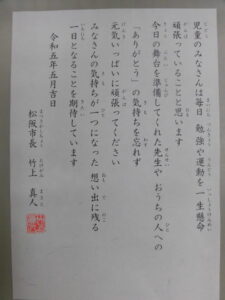 児童のみなさんは毎日 勉強や運動を一生懸命
頑張っていることと思います
今日の舞台を準備してくれた先生や おうちの人への
「ありがとう」の気持ちを忘れず
元気いっぱいに頑張ってください
みなさんの気持ちが一つになった 想い出に残る
一日となることを期待しています
令和五年五月吉日
松阪市長 竹上 真人